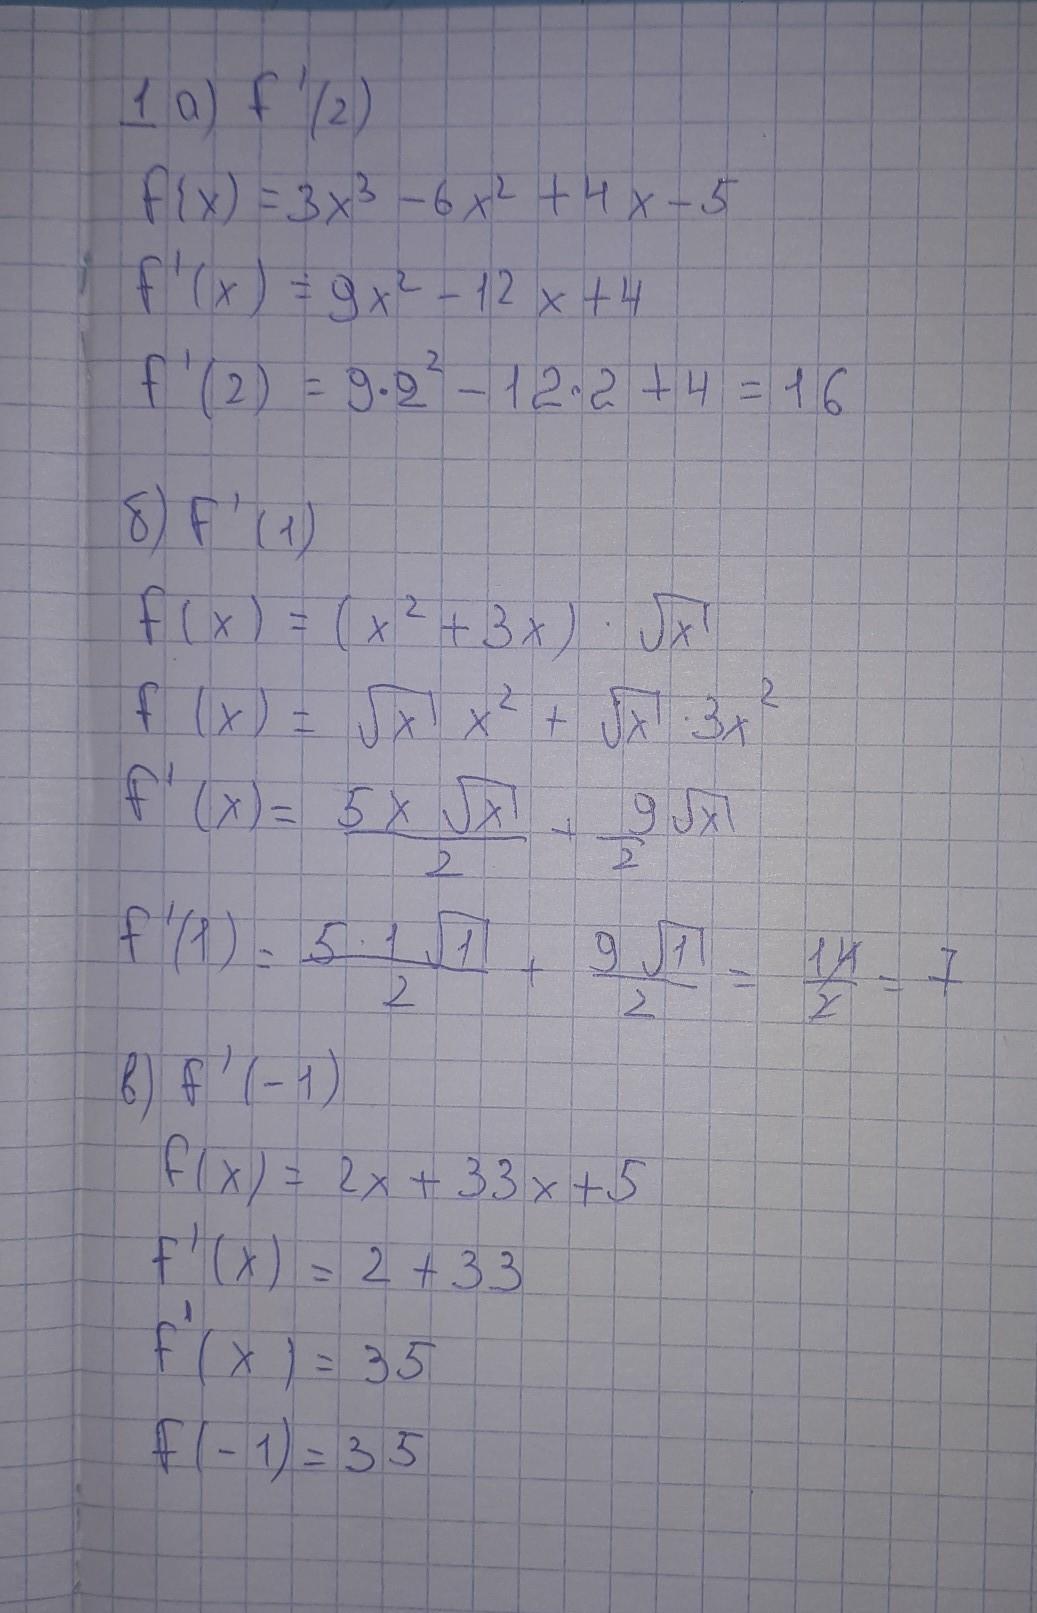 1 а) f'(2)
f(x) = 3x³ - 6x² + 4x - 5
f'(x) = 9x² - 12x + 4
f'(2) = 9·2² - 12·2 + 4 = 16
б) f'(1)
f(x) = (x² + 3x) · √x
f (x) = √x x² + √x · 3x²
f'(x) = 5x√x/2 + 9√x/2
f'(1) = 5·1√1/2 + 9√1/2 = 14/2 = 7
в) f'(-1)
f(x) = 2x + 33x + 5
f'(x) = 2 + 33
f'(x) = 35
f(-1) = 35